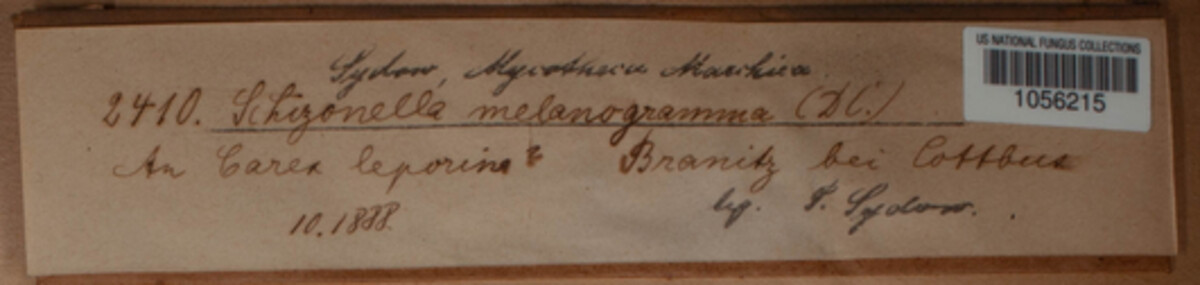 Sydow, Mycotheca Marchica.
US NATIONAL FUNGUS COLLECTIONS
1056215
2410. Schizonella melanogramma (DC.)
An Carex leporina? Branitz bei Cottbus
10.1888. leg. P. Sydow.